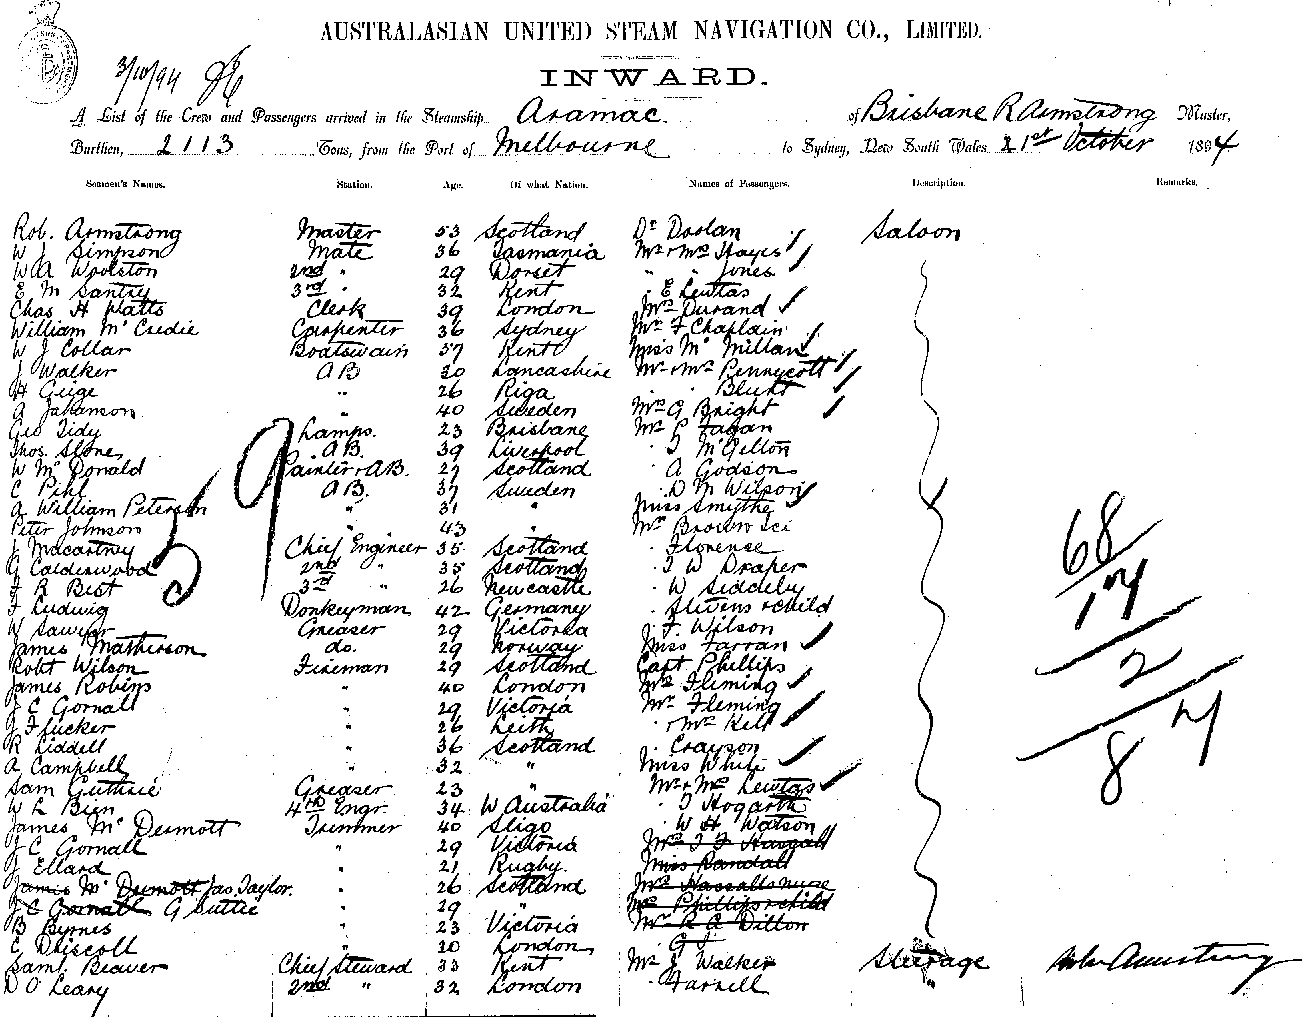 AUSTRALASIAN UNITED STEAM NAVIGATION CO., LIMITED.
3/10/94
INWARD.
A List of the Crew and Passengers arrived in the Steamship Aramac. of Brisbane R Armstrong Master,
Burthen, 2113 Tons, from the Port of Melbourne to Sydney, New South Wales 21st October 1894
Seamen's Names. Station. Age. Of what Nation. Names of Passengers. Description. Remarks.
Rob. Armstrong Master 53 Scotland Dr Doolan Saloon
W J Simpson Mate 36 Tasmania Mr & Mrs Hayes
W A Woolston 2nd " 29 Dorset " " Jones
E M Santry 3rd " 32 Kent " E Lewtas
Chas H Watts Clerk 39 London Mrs Durand
William McCredie Carpenter 36 Sydney Mr F Chaplain
W J Collar Boatswain 57 Kent Miss McMillan
J Walker A B 30 Lancashire Mr & Mrs Pennycott
H Geige " 26 Riga " " Blunt
A Johanson " 40 Sweden Mrs G Bright
Geo Tidy Lamps. 23 Brisbane Mr Fagan
Thos. Stone A B. 39 Liverpool
W McDonald Painter & A B. 27 Scotland " A Godson
C Pihl A B. 37 Sweden " D M Wilson
A William Peterson " 31 " Miss Smythe
Peter Johnson " 43 Mr Brown
59
J Macartney Chief Engineer 35 Scotland " Florence
G Calderwood 2nd " 35 Scotland " W Draper
J R Best 3rd " 26 Newcastle " W Siddeley
F Ludwig Donkeyman 42 Germany " Stevens & child
W Sawyer Greaser 29 Victoria " F. Wilson
James Matherson do. 29 Norway Miss Farran
Robt Wilson Fireman 29 Scotland Capt Phillips
James Robins " 40 London Mrs Fleming
J C Gornall " 29 Victoria Mr Fleming
J Flucker " 26 Leith
R Liddell " 36 Scotland " Grayson
A Campbell " 32 " Miss White
Sam Guthrie Greaser 23 " Mr & Mrs Lewtas
W L Bien 4th Engr. 34 W Australia " Hogarth
James McDermott Trimmer 40 Sligo " W H Watson
J C Gornall " 29 Victoria
J Ellard " 21 Rugby. Miss Randall
James McDermott Jas. Taylor. " 26 Scotland
J C Gornall G Suttie " 29 " Mrs Phillips & child
B Byrnes " 23 Victoria Mr R A Dillon
C Driscoll " 20 London
Saml. Beaver Chief Steward 33 Kent Mr J Walker Steerage
D O'Leary 2nd " 32 London " Farrell "
68
17
2